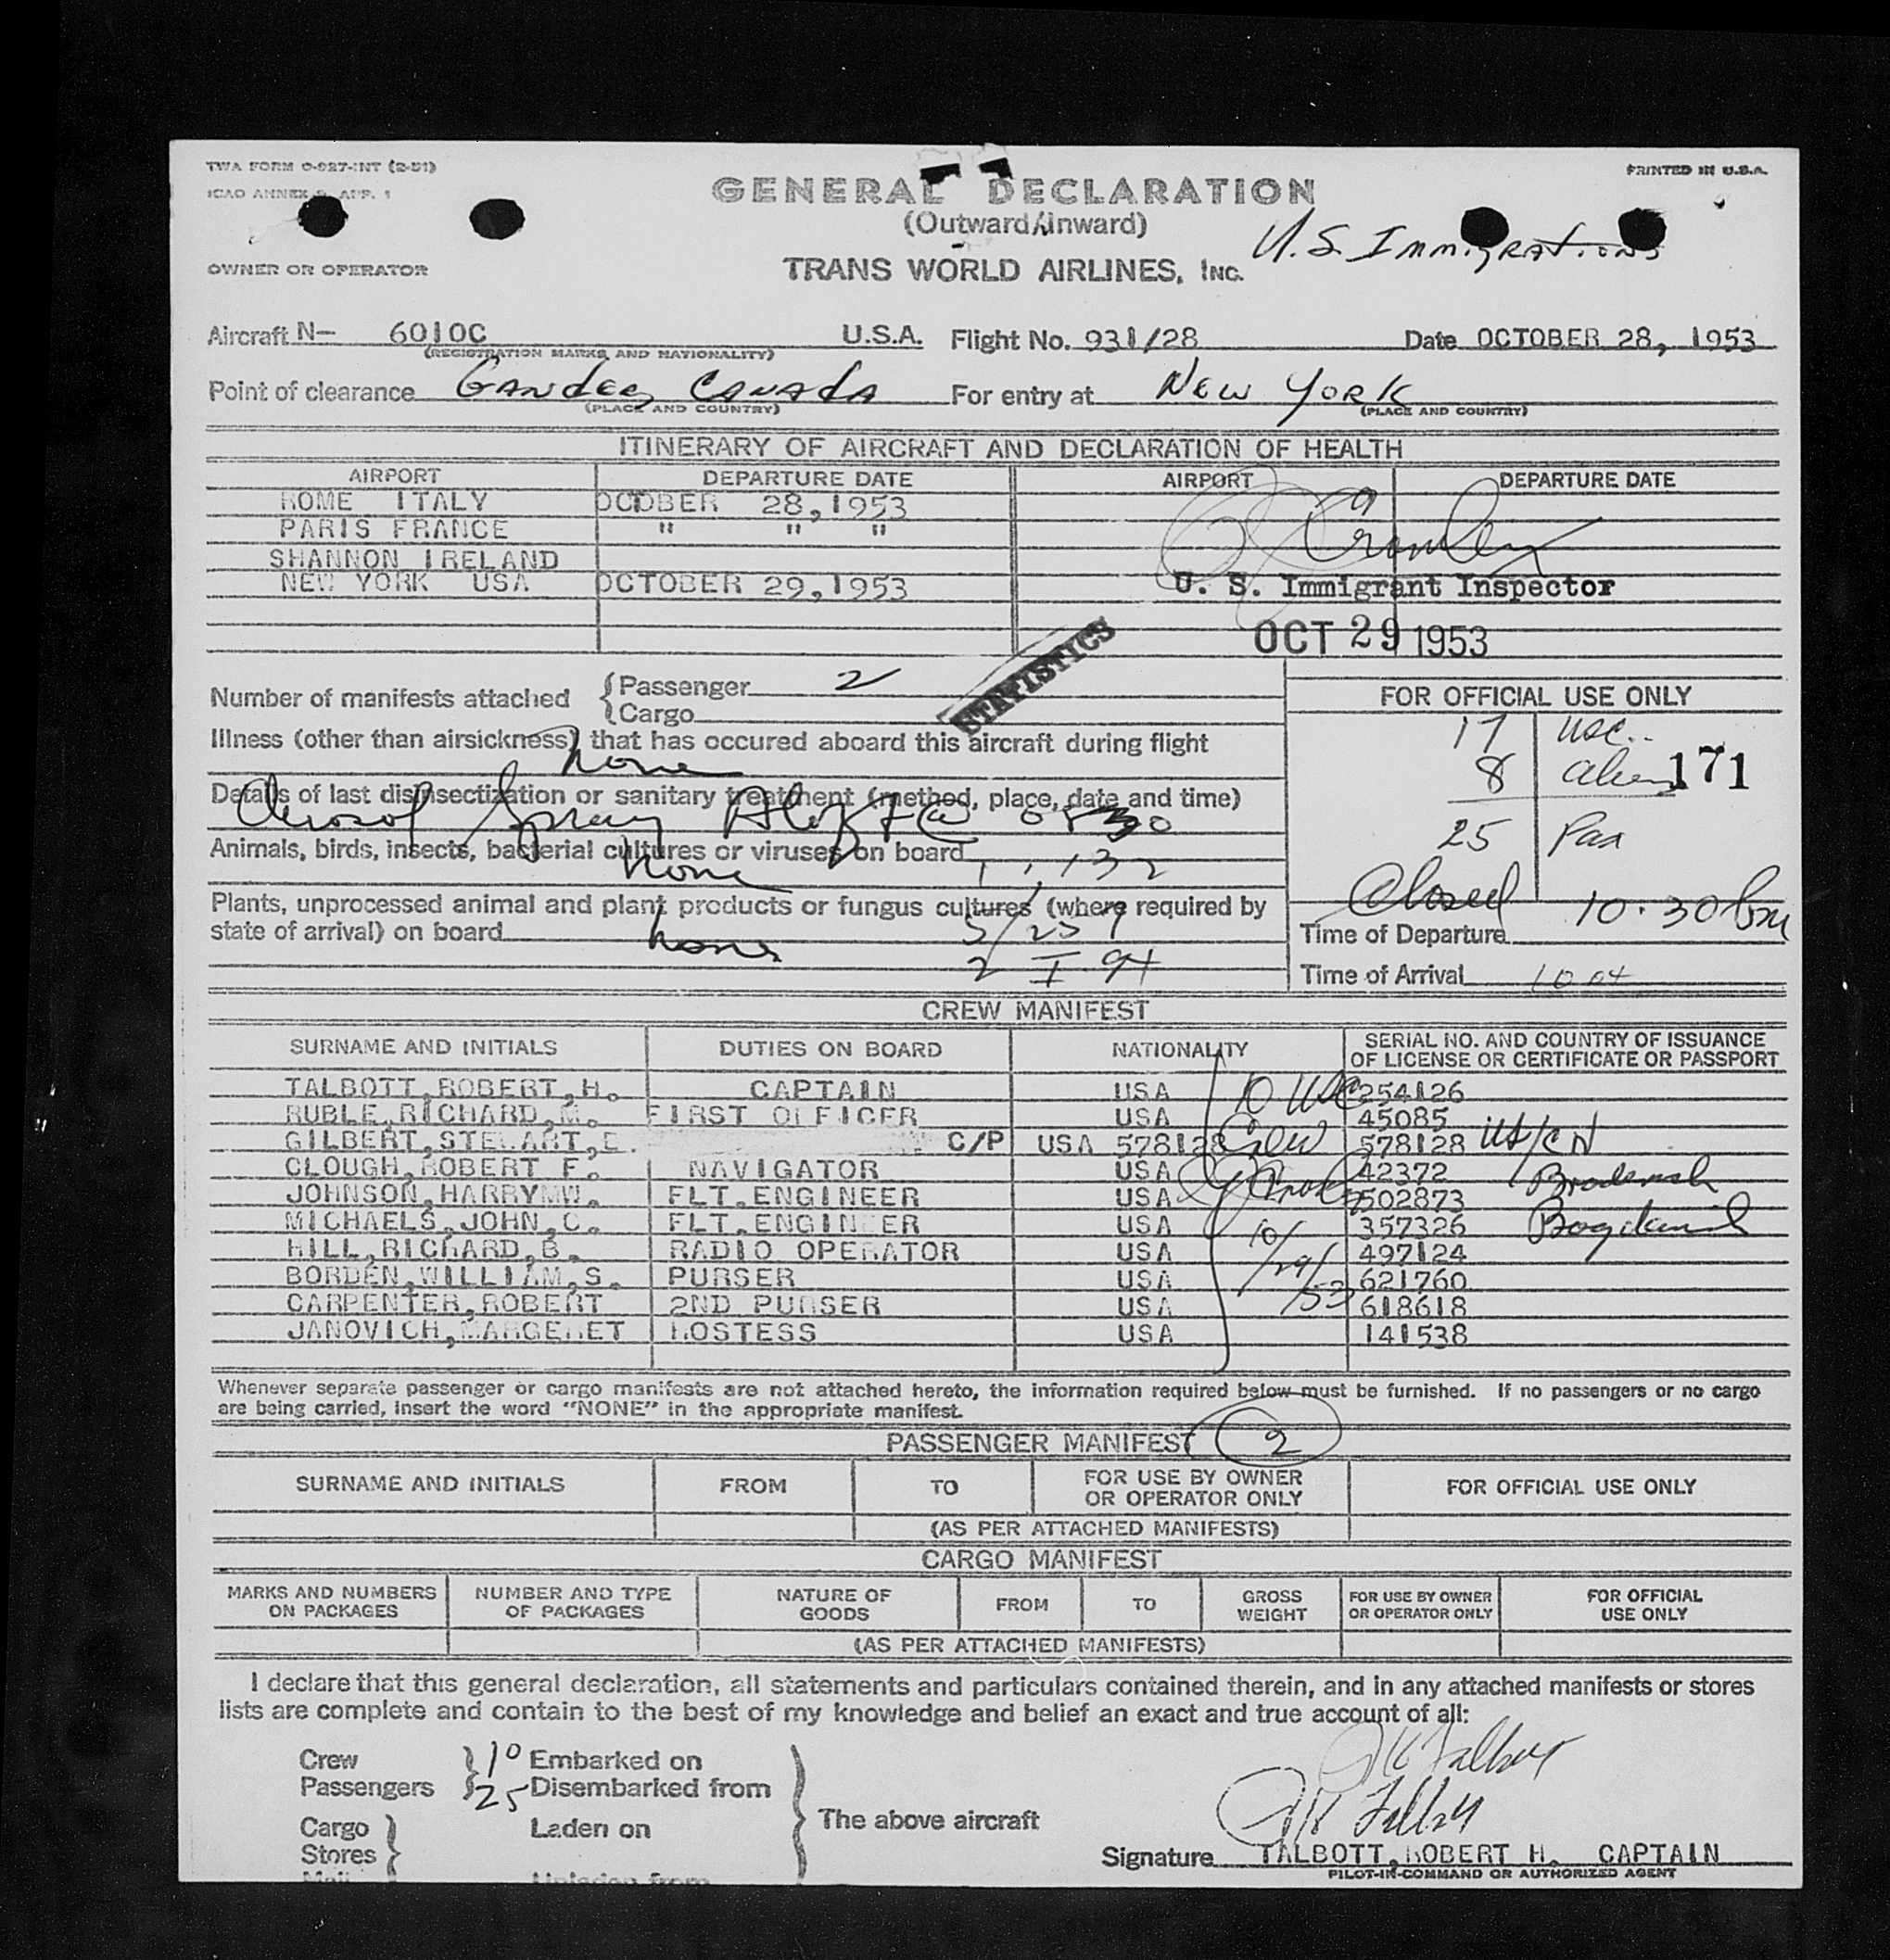 TWA FORM O-927-INT (2-51)
PRINTED IN U.S.A.
ICAO ANNEX 9, APP. 1
GENERAL DECLARATION
(Outward/Inward)
U.S. Immigrations
OWNER OR OPERATOR
TRANS WORLD AIRLINES, INC.
Aircraft N- 6010C U.S.A. Flight No. 931/28 Date OCTOBER 28, 1953
(REGISTRATION MARKS AND NATIONALITY)
Point of clearance Gander, Canada For entry at New York
(PLACE AND COUNTRY) (PLACE AND COUNTRY)
ITINERARY OF AIRCRAFT AND DECLARATION OF HEALTH
AIRPORT DEPARTURE DATE AIRPORT DEPARTURE DATE
ROME ITALY OCTOBER 28,1953
PARIS FRANCE " " "
SHANNON IRELAND
NEW YORK USA OCTOBER 29,1953
U. S. Immigrant Inspector
OCT 29 1953
STATISTICS
Number of manifests attached Passenger 2
Cargo
FOR OFFICIAL USE ONLY
17 USC..
8 aliens 171
25 Pax
Closed 10:30 pm
Illness (other than airsickness) that has occured aboard this aircraft during flight
None
Details of last disinsectization or sanitary treatment (method, place, date and time)
Aerosol Spray
Animals, birds, insects, bacterial cultures or viruses on board
None
Plants, unprocessed animal and plant products or fungus cultures (where required by
state of arrival) on board none
Time of Departure
Time of Arrival 10 04
CREW MANIFEST
SURNAME AND INITIALS DUTIES ON BOARD NATIONALITY SERIAL NO. AND COUNTRY OF ISSUANCE
OF LICENSE OR CERTIFICATE OR PASSPORT
TALBOTT,ROBERT,H. CAPTAIN USA 10 USC 254126
RUBLE,RICHARD,M. FIRST OFFICER USA 45085
GILBERT,STEWART,E. C/P USA 578128 Crew 578128
CLOUGH,ROBERT F. NAVIGATOR USA 42372
JOHNSON,HARRYMW. FLT.ENGINEER USA 502873
MICHAELS,JOHN,C. FLT.ENGINEER USA 357326
HILL,RICHARD,B. RADIO OPERATOR USA 497124
BORDEN,WILLIAM,S. PURSER USA 621760
CARPENTER,ROBERT 2ND PURSER USA 618618
JANOVICH,MARGERET HOSTESS USA 141538
10/29/53
Whenever separate passenger or cargo manifests are not attached hereto, the information required below must be furnished. If no passengers or no cargo
are being carried, insert the word "NONE" in the appropriate manifest.
PASSENGER MANIFEST 2
SURNAME AND INITIALS FROM TO FOR USE BY OWNER OR OPERATOR ONLY FOR OFFICIAL USE ONLY
(AS PER ATTACHED MANIFESTS)
CARGO MANIFEST
MARKS AND NUMBERS ON PACKAGES NUMBER AND TYPE OF PACKAGES NATURE OF GOODS FROM TO GROSS WEIGHT FOR USE BY OWNER OR OPERATOR ONLY FOR OFFICIAL USE ONLY
(AS PER ATTACHED MANIFESTS)
I declare that this general declaration, all statements and particulars contained therein, and in any attached manifests or stores
lists are complete and contain to the best of my knowledge and belief an exact and true account of all:
Crew 10 Embarked on
Passengers 25 Disembarked from
The above aircraft
Cargo Laden on
Stores
Signature TALBOTT,ROBERT H. CAPTAIN
PILOT-IN-COMMAND OR AUTHORIZED AGENT